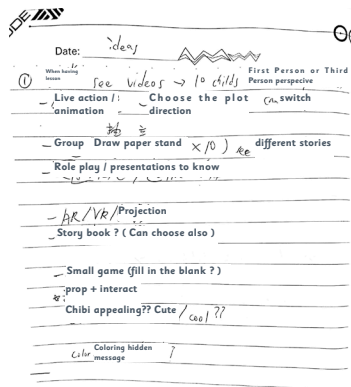 Date: ideas
① When having lesson see videos → 10 childs First Person or Third Person perspecive
- Live action / animation - Choose the plot direction can switch
- Group Draw paper stand x10 ) see different stories
- Role play / presentations to know
- AR/VR/Projection
- Story book ? ( Can choose also )
- Small game (fill in the blank ? )
prop + interact
Chibi appealing?? Cute / cool ??
color Coloring hidden message ?